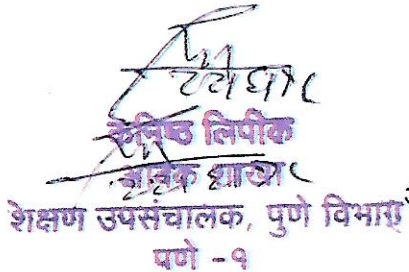 कनिष्ठ लिपीक
आवक शाखा
शिक्षण उपसंचालक, पुणे विभाग
पुणे -१